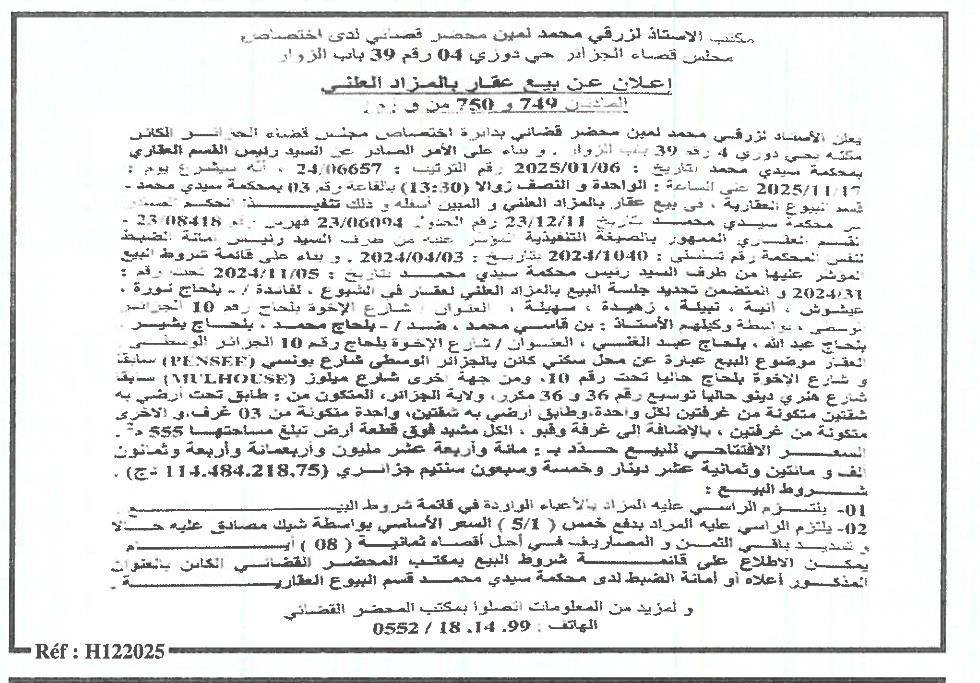 مكتب الاستاذ لزرقي محمد لمين محضر قضائي لدى اختصاص
مجلس قضاء الجزائر حي دوزي 04 رقم 39 باب الزوار
إعلان عن بيع عقار بالمزاد العلني
المادتان 749 و 750 من ق إ م إ
يعلن الأستاذ لزرقي محمد لمين محضر قضائي بدائرة اختصاص مجلس قضاء الجزائر الكائن
مكتبه بحي دوزي 4 رقم 39 باب الزوار . و بناء على الأمر الصادر عن السيد رئيس القسم العقاري
بمحكمة سيدي محمد بتاريخ : 2025/01/06 رقم الترتيب : 24/06657 ، أنه سيشرع يوم :
2025/11/17 على الساعة : الواحدة و النصف زوالا (13:30) بالقاعة رقم 03 بمحكمة سيدي محمد -
قسم البيوع العقارية ، في بيع عقار بالمزاد العلني و المبين أسفله و ذلك تنفيذا للحكم الصادر
عن محكمة سيدي محمد بتاريخ 23/12/11 رقم الجدول 23/06094 فهرس رقم 23/08418 -
القسم العقاري الممهور بالصيغة التنفيذية المؤشر عنه من طرف السيد رئيس أمانة الضبط
لنفس المحكمة رقم تسلسلي : 2024/1040 بتاريخ : 2024/04/03 . و بناء على قائمة شروط البيع
الموشر عليها من طرف السيد رئيس محكمة سيدي محمد بتاريخ : 2024/11/05 تحت رقم :
2024/31 و المتضمن تحديد جلسة البيع بالمزاد العلني لعقار في الشيوع ، لفائدة /- بلحاج نورة ،
عيشوش ، أنيسة ، نبيلة ، زهيدة ، سهيلة ، العنوان : شارع الإخوة بلحاج رقم 10 الجزائر
الوسطى ، بواسطة وكيلهم الأستاذ : بن قاسي محمد ، ضد /- بلحاج محمد ، بلحاج بشير ،
بلحاج عبد الله ، بلحاج عبد الغني ، العنوان / شارع الإخوة بلحاج رقم 10 الجزائر الوسطى .
العقار موضوع البيع عبارة عن محل سكني كائن بالجزائر الوسطى شارع بونسي (PENSEE) سابقا
و شارع الإخوة بلحاج حاليا تحت رقم 10، ومن جهة اخرى شارع ميلوز (MULHOUSE) سابقا
شارع هنري دينو حاليا توسيع رقم 36 و 36 مكرر، ولاية الجزائر، المتكون من : طابق تحت أرضي به
شقتين متكونة من غرفتين لكل واحدة، وطابق أرضي به شقتين، واحدة متكونة من 03 غرف، و الاخرى
متكونة من غرفتين ، بالإضافة إلى غرفة وقبو ، الكل مشيد فوق قطعة أرض تبلغ مساحتها 555 م² .
السعر الافتتاحي للبيع حدد بـ : مائة وأربعة عشر مليون وأربعمائة وأربعة وثمانون
ألف و مائتين وثمانية عشر دينار وخمسة وسبعون سنتيم جزائري (114.484.218,75 دج) .
شروط البيع :
01- يلتزم الراسي عليه المزاد بالأعباء الواردة في قائمة شروط البيع .
02- يلتزم الراسي عليه المزاد بدفع خمس ( 5/1 ) السعر الأساسي بواسطة شيك مصادق عليه حالا
و تسديد باقي الثمن و المصاريف في أجل أقصاه ثمانية ( 08 ) أيام
يمكن الاطلاع على قائمة شروط البيع بمكتب المحضر القضائي الكائن بالعنوان
المذكور أعلاه أو أمانة الضبط لدى محكمة سيدي محمد قسم البيوع العقارية .
و لمزيد من المعلومات اتصلوا بمكتب المحضر القضائي
الهاتف : 99 .14 .18 / 0552
Réf : H122025